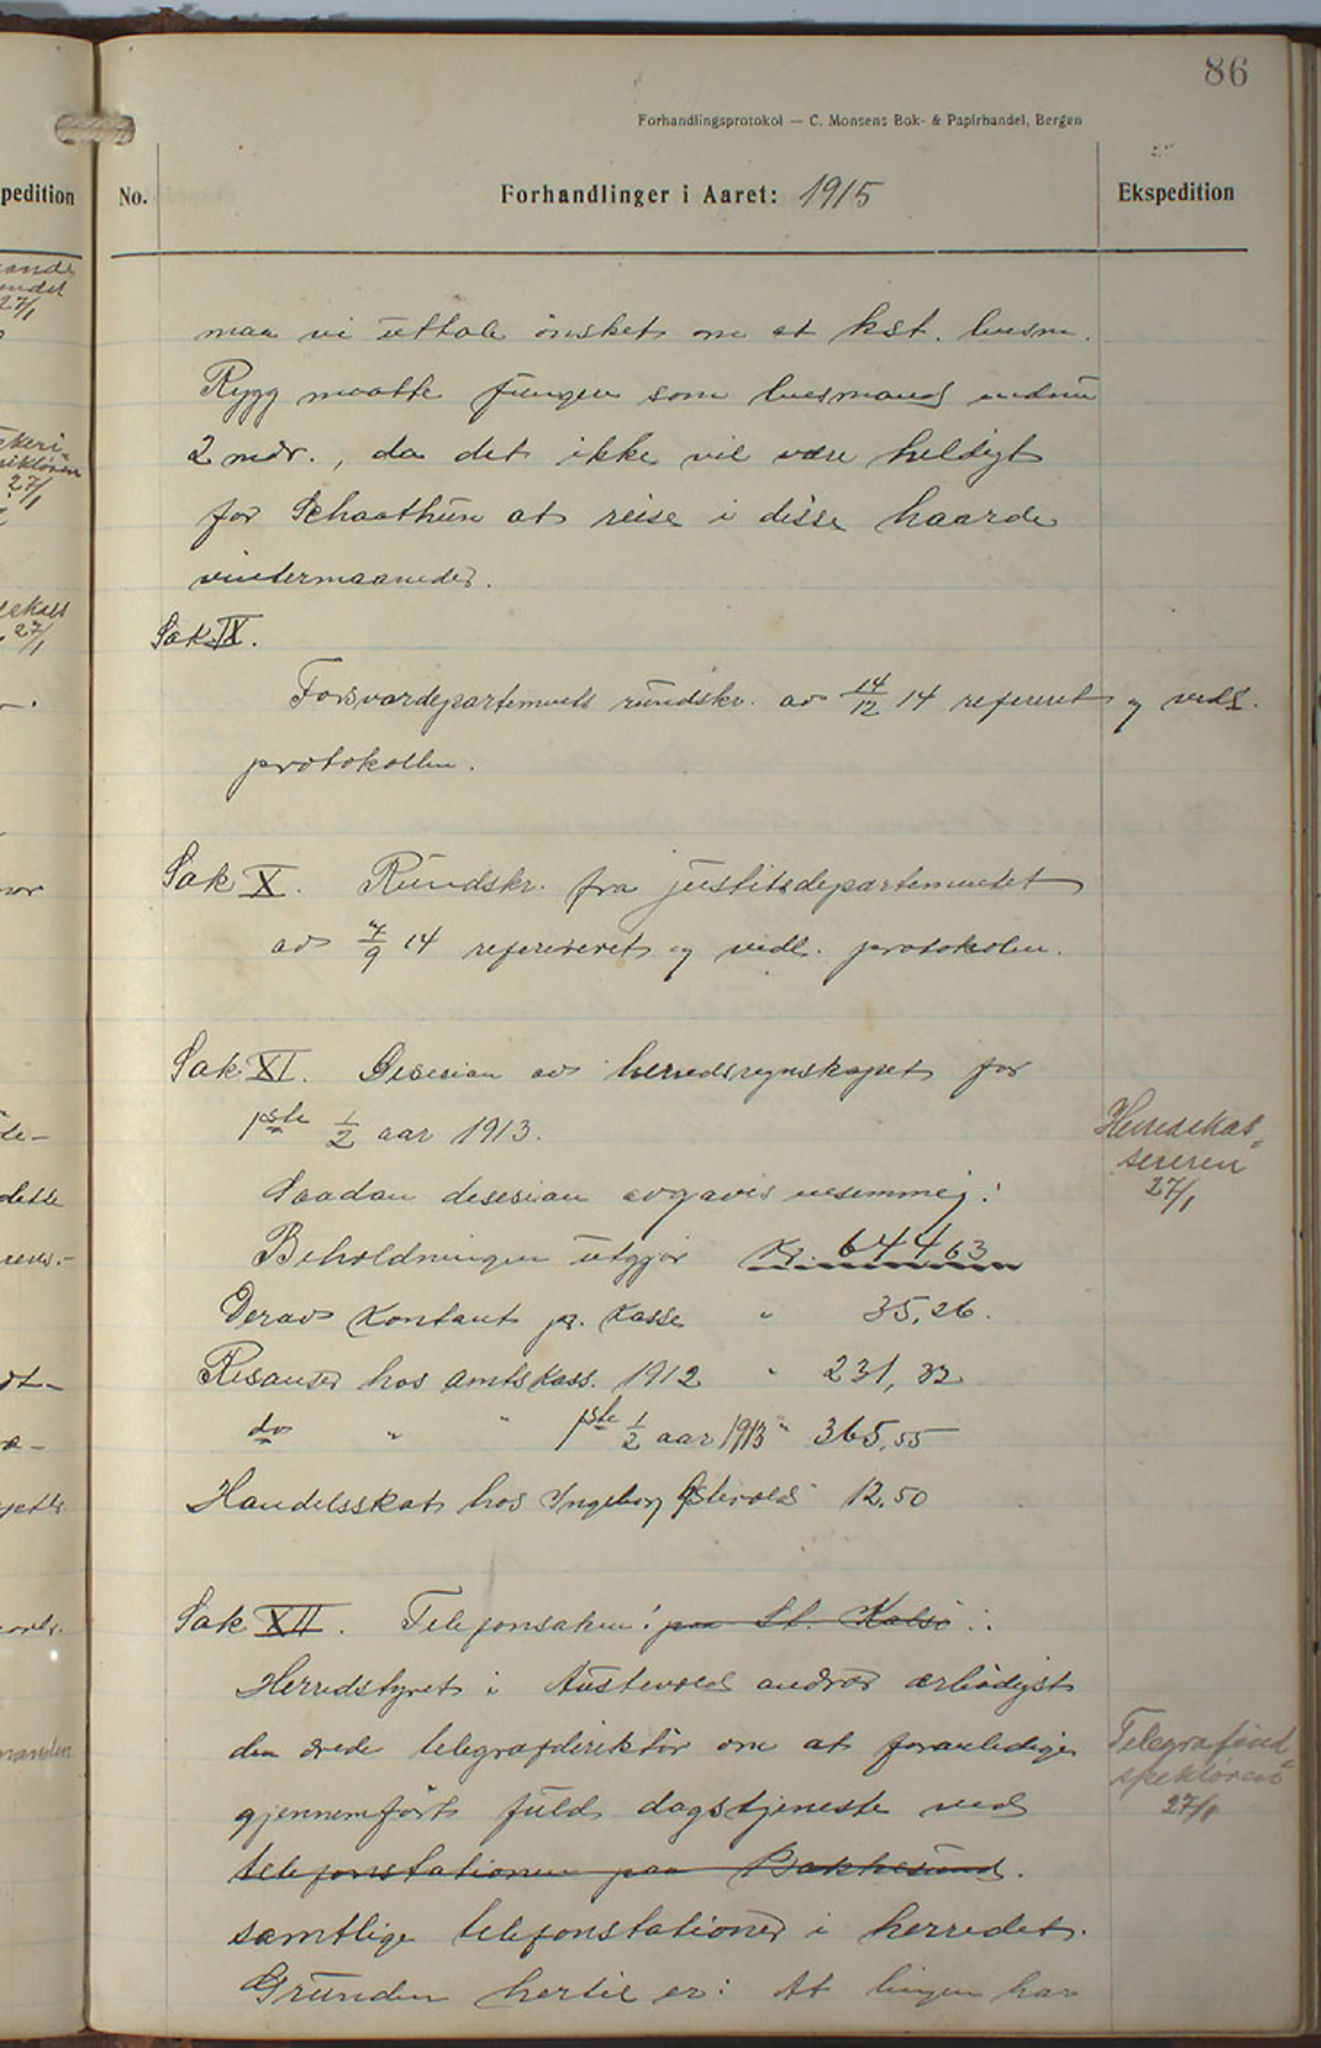 86
Forhandlingsprotokol — C. Monsens Bok- & Papirhandel, Bergen
pedition
No.
Forhandlinger i Aaret: 1915
Ekspedition
maa vi uttale ønsket om at kst. lensm.
Rygg maatte fungere som lensmand endnu
2 mdr., da det ikke vil være heldigt
for Schaathun at reise i disse haarde
vintermaaneder.
Sak IX.
Forsvardepartements rundskr. av 14/12 14 referert og vedl.
protokollen.
Sak X. Rundskr. fra justitsdepartementet
av 7/9 14 refereret og vedl. protokolen.
Sak XI. Desision av herredsregnskapet for
1ste 1/2 aar 1913.
Saadan desision avgaves :
Beholdningen utgjør Kr. 644,63
Derav Kontant pr. Kasse " 35,26.
Resanser hos amtskass. 1912 " 231,32
do " " 1ste 1/2 aar 1913 " 365,55
Handelsskat hos Ingeborg Østervold 12,50
Herredskas-
sereren
27/1
Sak XII. Telefonsaken: paa St. Kalsø:
Herredstyret i Austevold andrar ærbødigst
den ærede telegrafdirektør om at foranledige
gjennemført fuld dagstjeneste ved
telefonstationen paa Bakkesund.
samtlige telefonstationer i herredet.
Grunden hertil er: At linjen har
Telegrafind-
spektøren
27/1